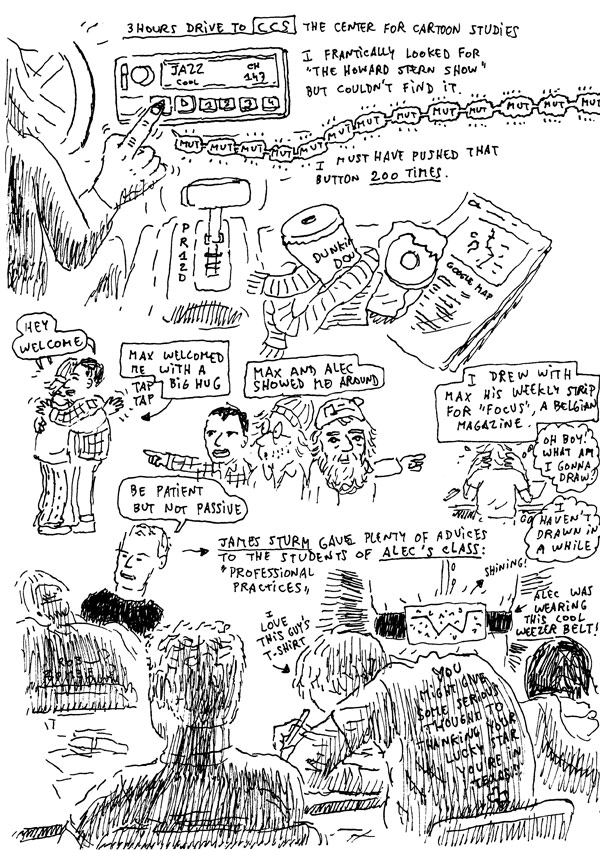 3 HOURS DRIVE TO CCS THE CENTER FOR CARTOON STUDIES
JAZZ
COOL
CH
147
1 2 3 4
I FRANTICALLY LOOKED FOR
"THE HOWARD STERN SHOW"
BUT COULDN'T FIND IT.
MUT MUT MUT MUT MUT MUT MUT MUT MUT MUT MUT MUT
I MUST HAVE PUSHED THAT
BUTTON 200 TIMES.
P
R
1
2
D
DUNKIN
DOU
GOOGLE MAP
HEY
WELCOME
MAX WELCOMED
ME WITH A
BIG HUG
TAP
TAP
MAX AND ALEC
SHOWED ME AROUND
I DREW WITH
MAX HIS WEEKLY STRIP
FOR "FOCUS", A BELGIAN
MAGAZINE.
OH BOY!
WHAT AM
I GONNA
DRAW?
I
HAVEN'T
DRAWN IN
A WHILE
BE PATIENT
BUT NOT PASSIVE
JAMES STURM GAVE PLENTY OF ADVICES
TO THE STUDENTS OF ALEC'S CLASS:
"PROFESSIONAL
PRACTICES"
SHINING!
ALEC WAS
WEARING
THIS COOL
WEEZER BELT!
I
LOVE
THIS GUY'S
T-SHIRT
YOU
MIGHT GIVE
SOME SERIOUS
THOUGHT TO
THANKING YOUR
LUCKY STAR
YOU'RE IN
TEXAS